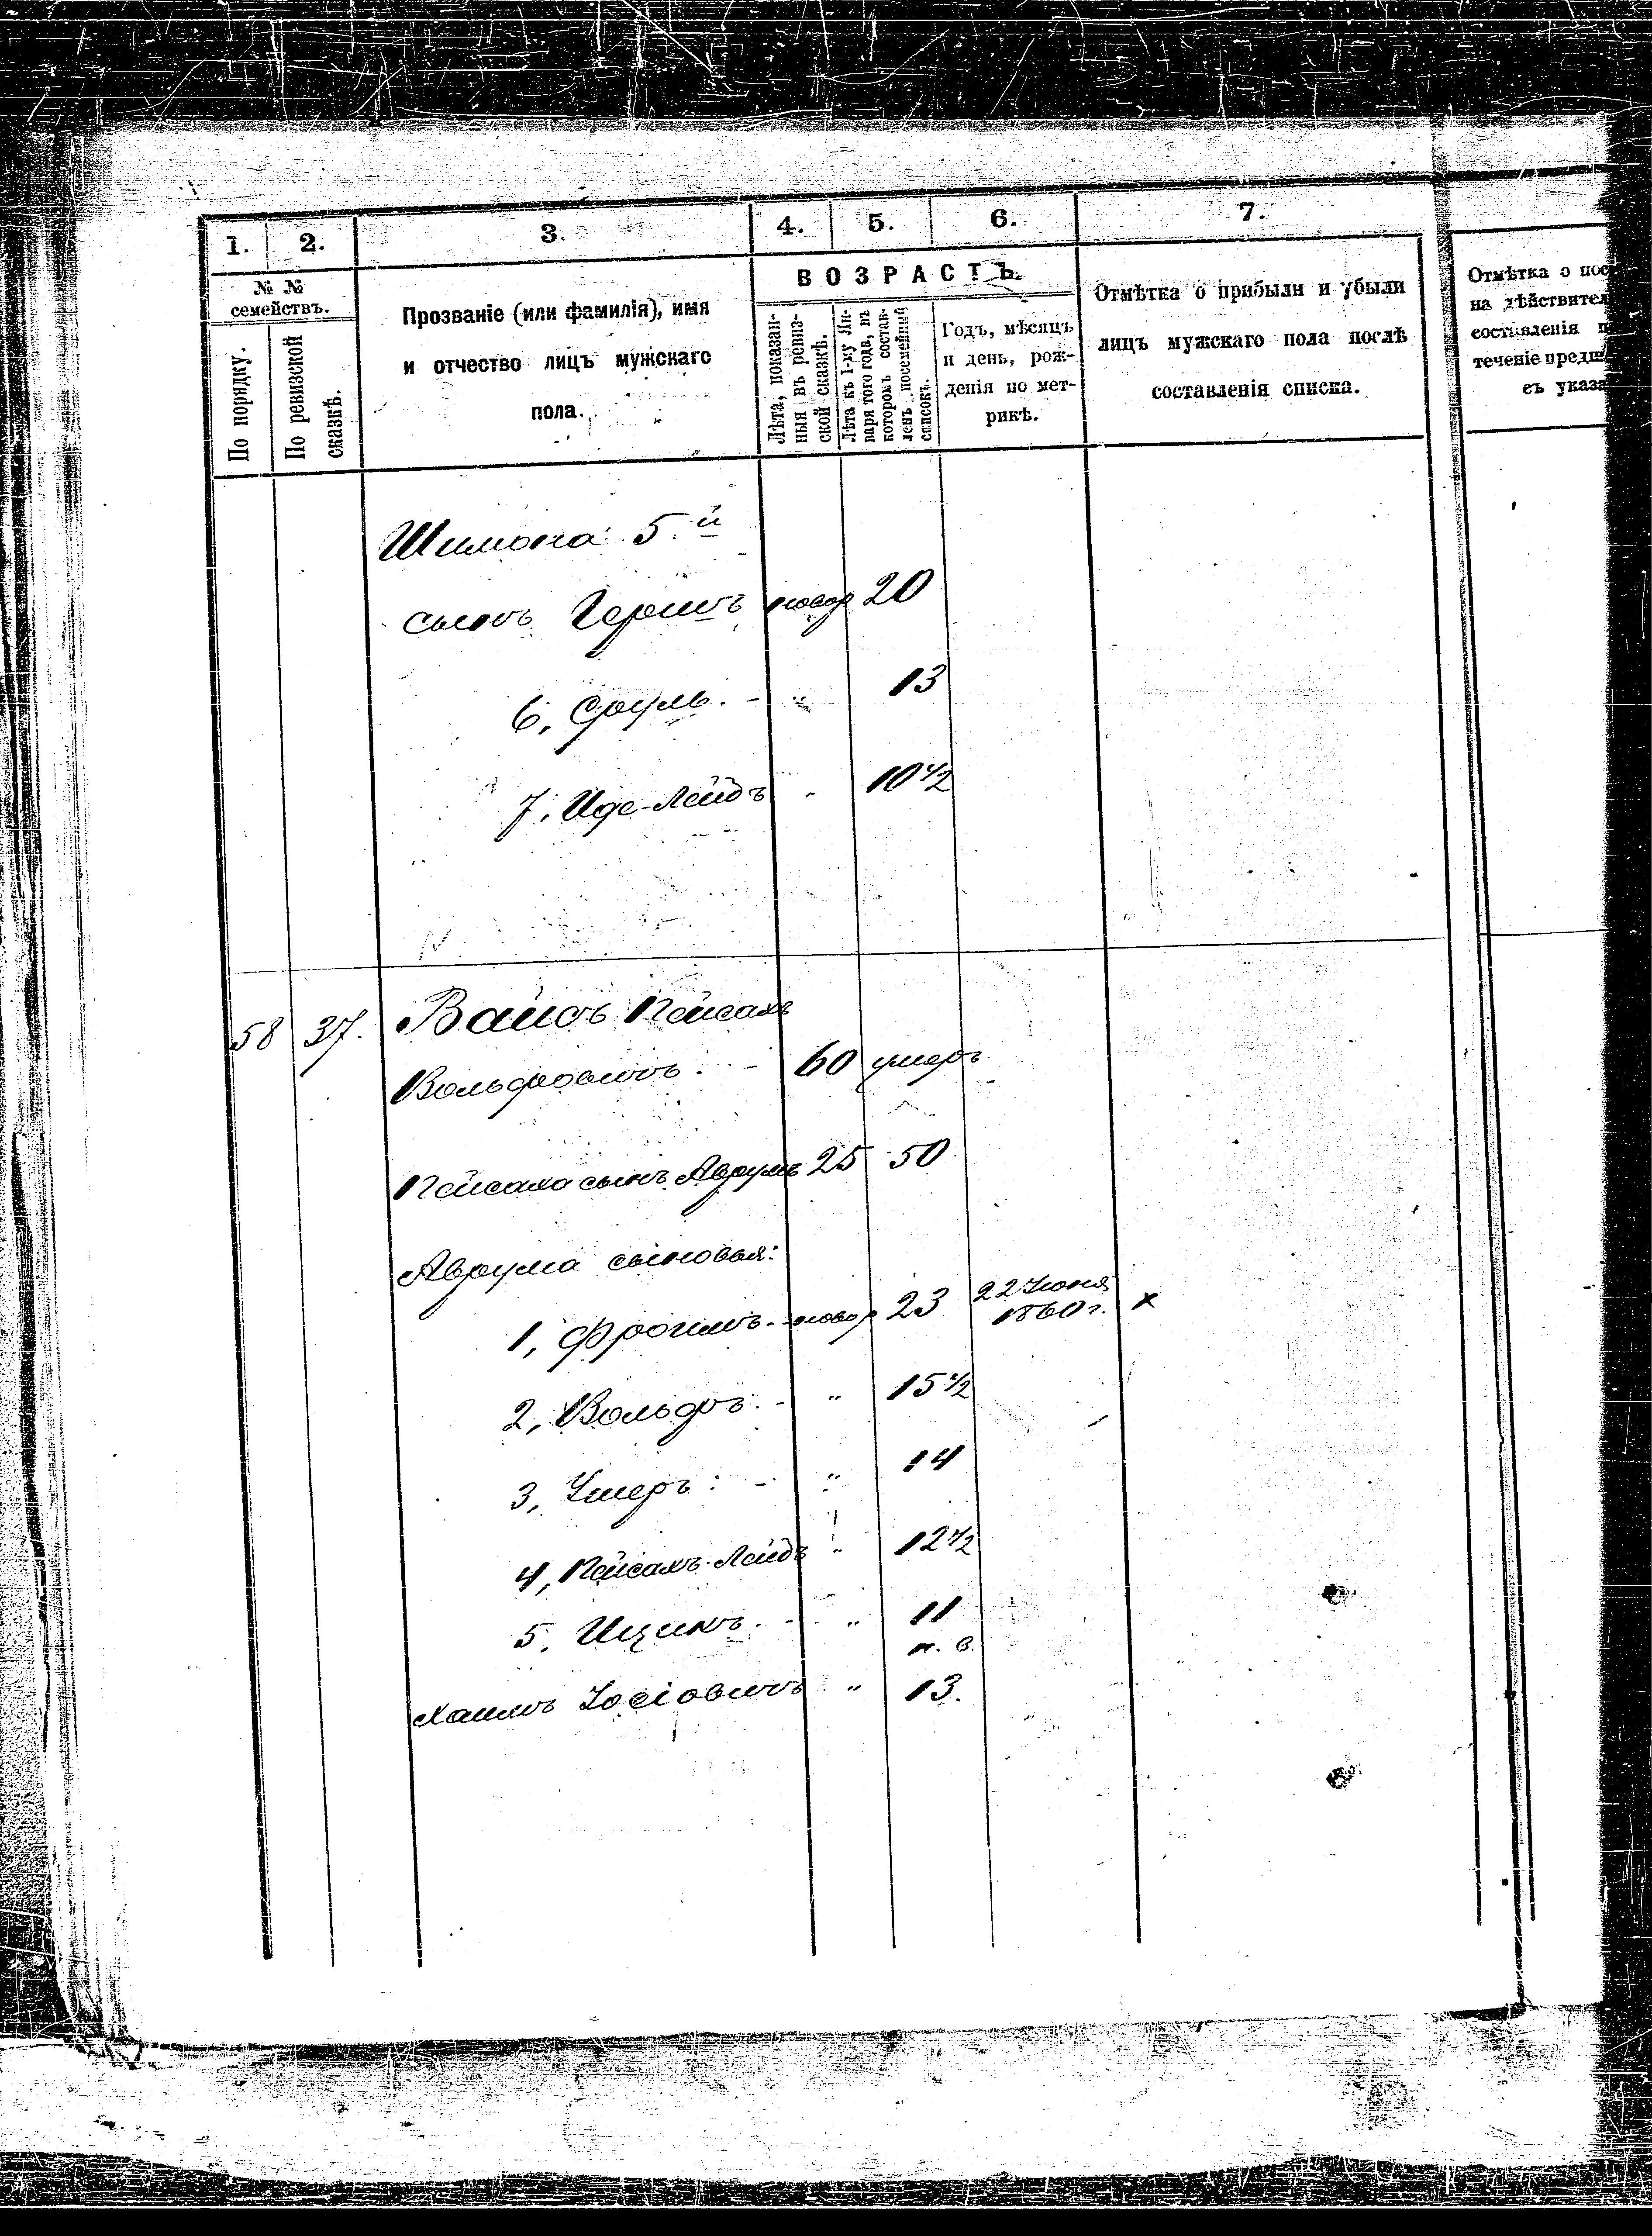 1.
2.
3.
4.
5.
6.
7.
№ №
семействъ.
По порядку.
По ревизской
сказкѣ.
Прозваніе (или фамилія), имя
и отчество лицъ мужскаго
пола.
ВОЗРАСТЪ.
Лѣта, показан-
ныя въ ревиз-
ской сказкѣ.
Лѣта къ 1-му Ян-
варя того года, въ
которомъ состав-
ленъ посемейный
списокъ.
Годъ, мѣсяцъ
и день, рож-
денія по мет-
рикѣ.
Отмѣтка о прибыли и убыли
лицъ мужскаго пола послѣ
составленія списка.
Отмѣтка о пос
на дѣйствител
составленія п
теченіе предш
съ указа
Шимона 5.й
сынъ Гершъ новор 20
6, Сруль. - " 13
7, Иде-Лейбъ " 10 1/2
58 37. Вайсъ Пейсахъ
Вольфовичъ. - 60 умеръ
Пейсаха сынъ Аврумъ 25 50
Аврума сыновья:
1, Фроимъ. - новор 23 22 Іюня
1860 г. x
2, Вольфъ. - " 15 1/2
3, Ушеръ: - " 14
4, Пейсахъ-Лейбъ " 12 1/2
5, Ицикъ. - " 11
н. в.
Хаимъ Іосіовичъ " 13.